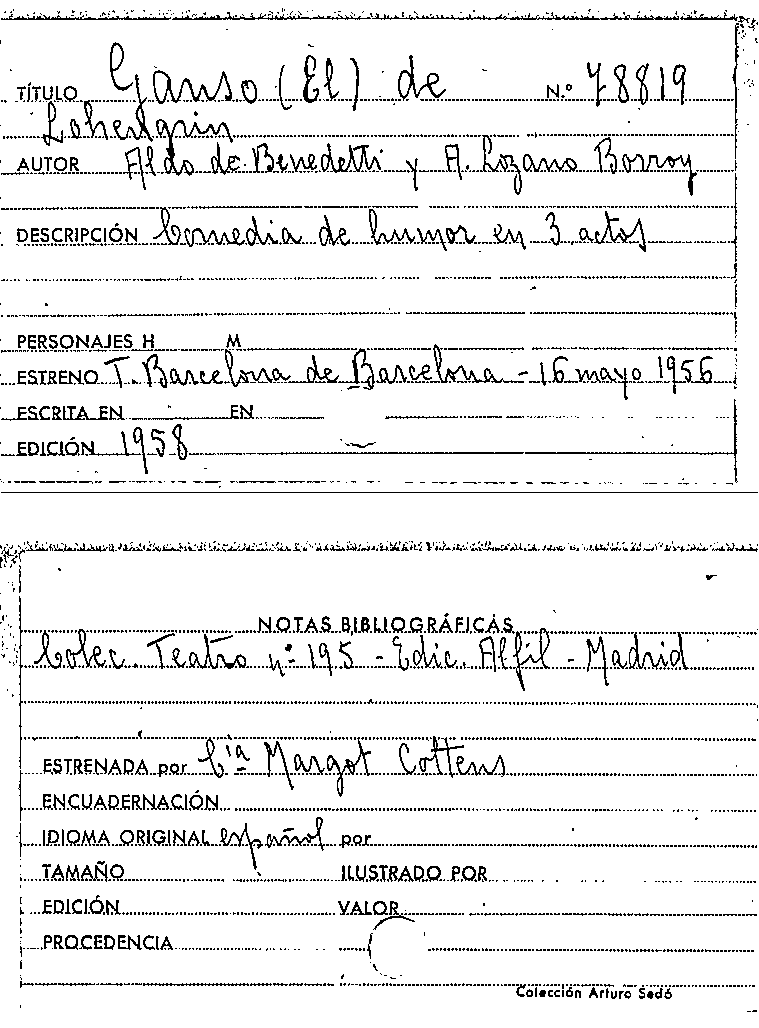 TÍTULO Ganso (El) de N.º 78819
Lohengrin
AUTOR Aldo de Benedetti y A. Lozano Borroy
DESCRIPCIÓN Comedia de humor en 3 actos
PERSONAJES H M
ESTRENO T. Barcelona de Barcelona - 16 mayo 1956
ESCRITA EN EN
EDICIÓN 1958
NOTAS BIBLIOGRÁFICAS
Colec. Teatro nº 195 - Edic. Alfil - Madrid
ESTRENADA por Cía Margot Cottens
ENCUADERNACIÓN
IDIOMA ORIGINAL español por
TAMAÑO ILUSTRADO POR
EDICIÓN VALOR
PROCEDENCIA
Colección Arturo Sedó